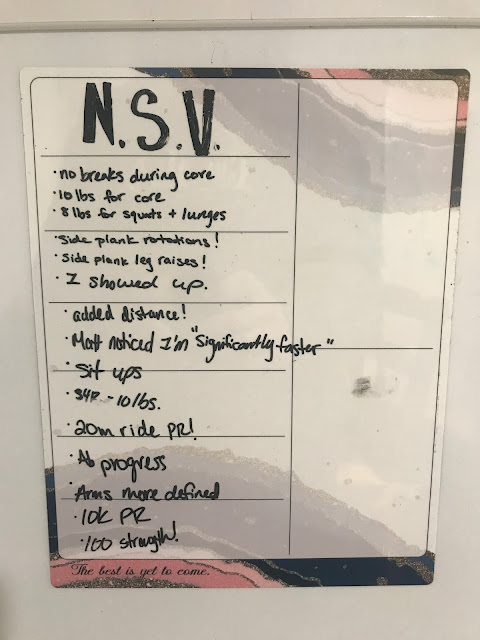 N.S.V.
· no breaks during core
· 10 lbs for core
· 8 lbs for squats + lunges
· Side plank rotations!
· Side plank leg raises!
· I showed up.
· added distance!
· Matt noticed I'm "significantly faster"
· Sit ups
· - 10 lbs.
· 20m ride PR!
· Ab progress
· Arms more defined
· 10k PR
· 100 strength!
The best is yet to come.